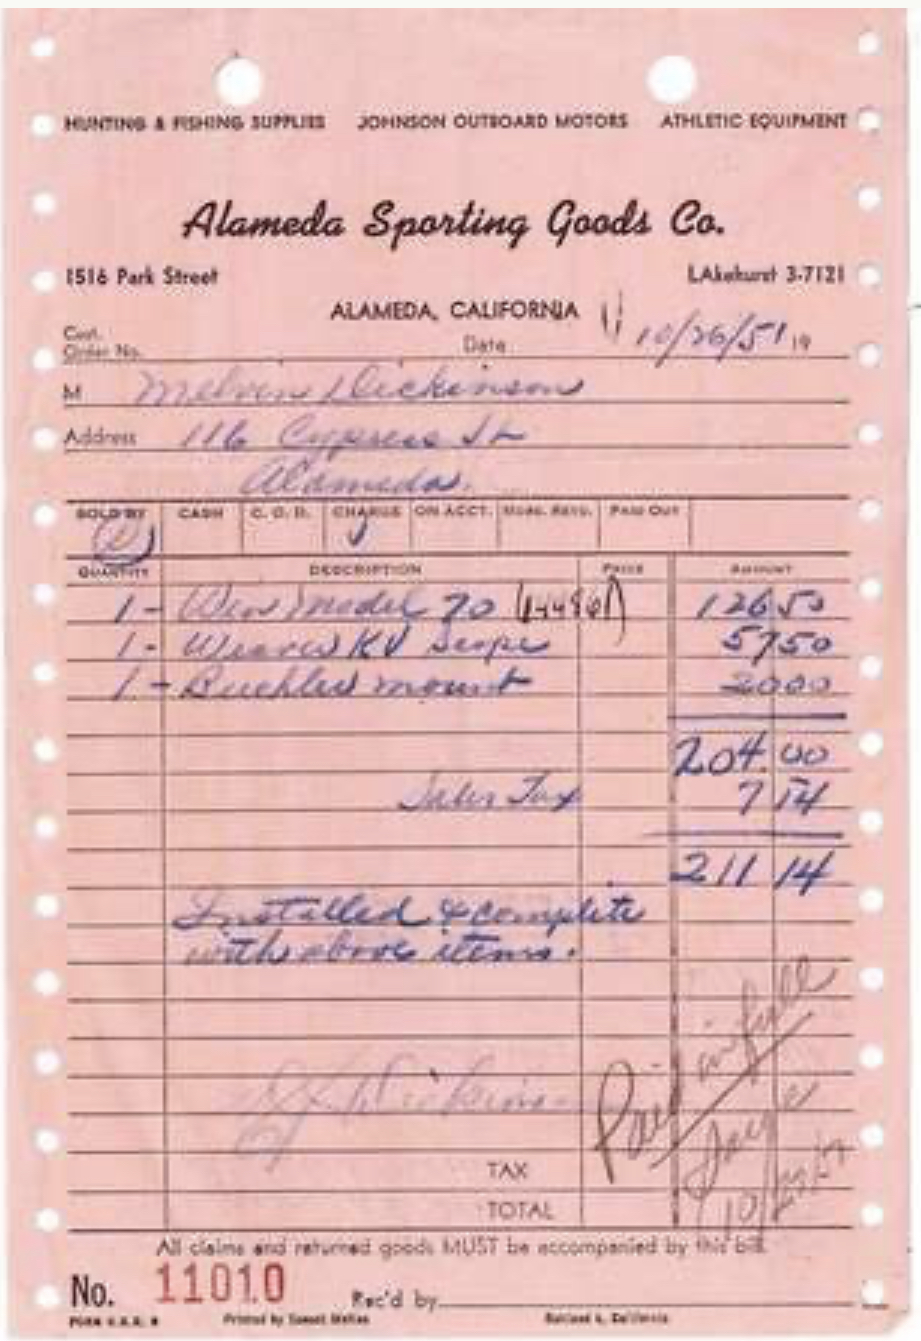 HUNTING & FISHING SUPPLIES JOHNSON OUTBOARD MOTORS ATHLETIC EQUIPMENT
Alameda Sporting Goods Co.
1516 Park Street LAkehurst 3-7121
ALAMEDA, CALIFORNIA
Cust. Order No. Date 10/26/51 19
M Melvin Dickinson
Address 116 Cypress St
Alameda.
SOLD BY CASH C. O. D. CHARGE ON ACCT. MDSE. RETD. PAID OUT
QUANTITY DESCRIPTION PRICE AMOUNT
1 - Win model 70 126 50
1 - Weaver KV Scope 57 50
1 - Buehler mount 20 00
204.00
Sales Tax 7 14
211 14
Installed & complete
with above items.
Paid in full
TAX
TOTAL
All claims and returned goods MUST be accompanied by this bill.
No. 11010 Rec'd by